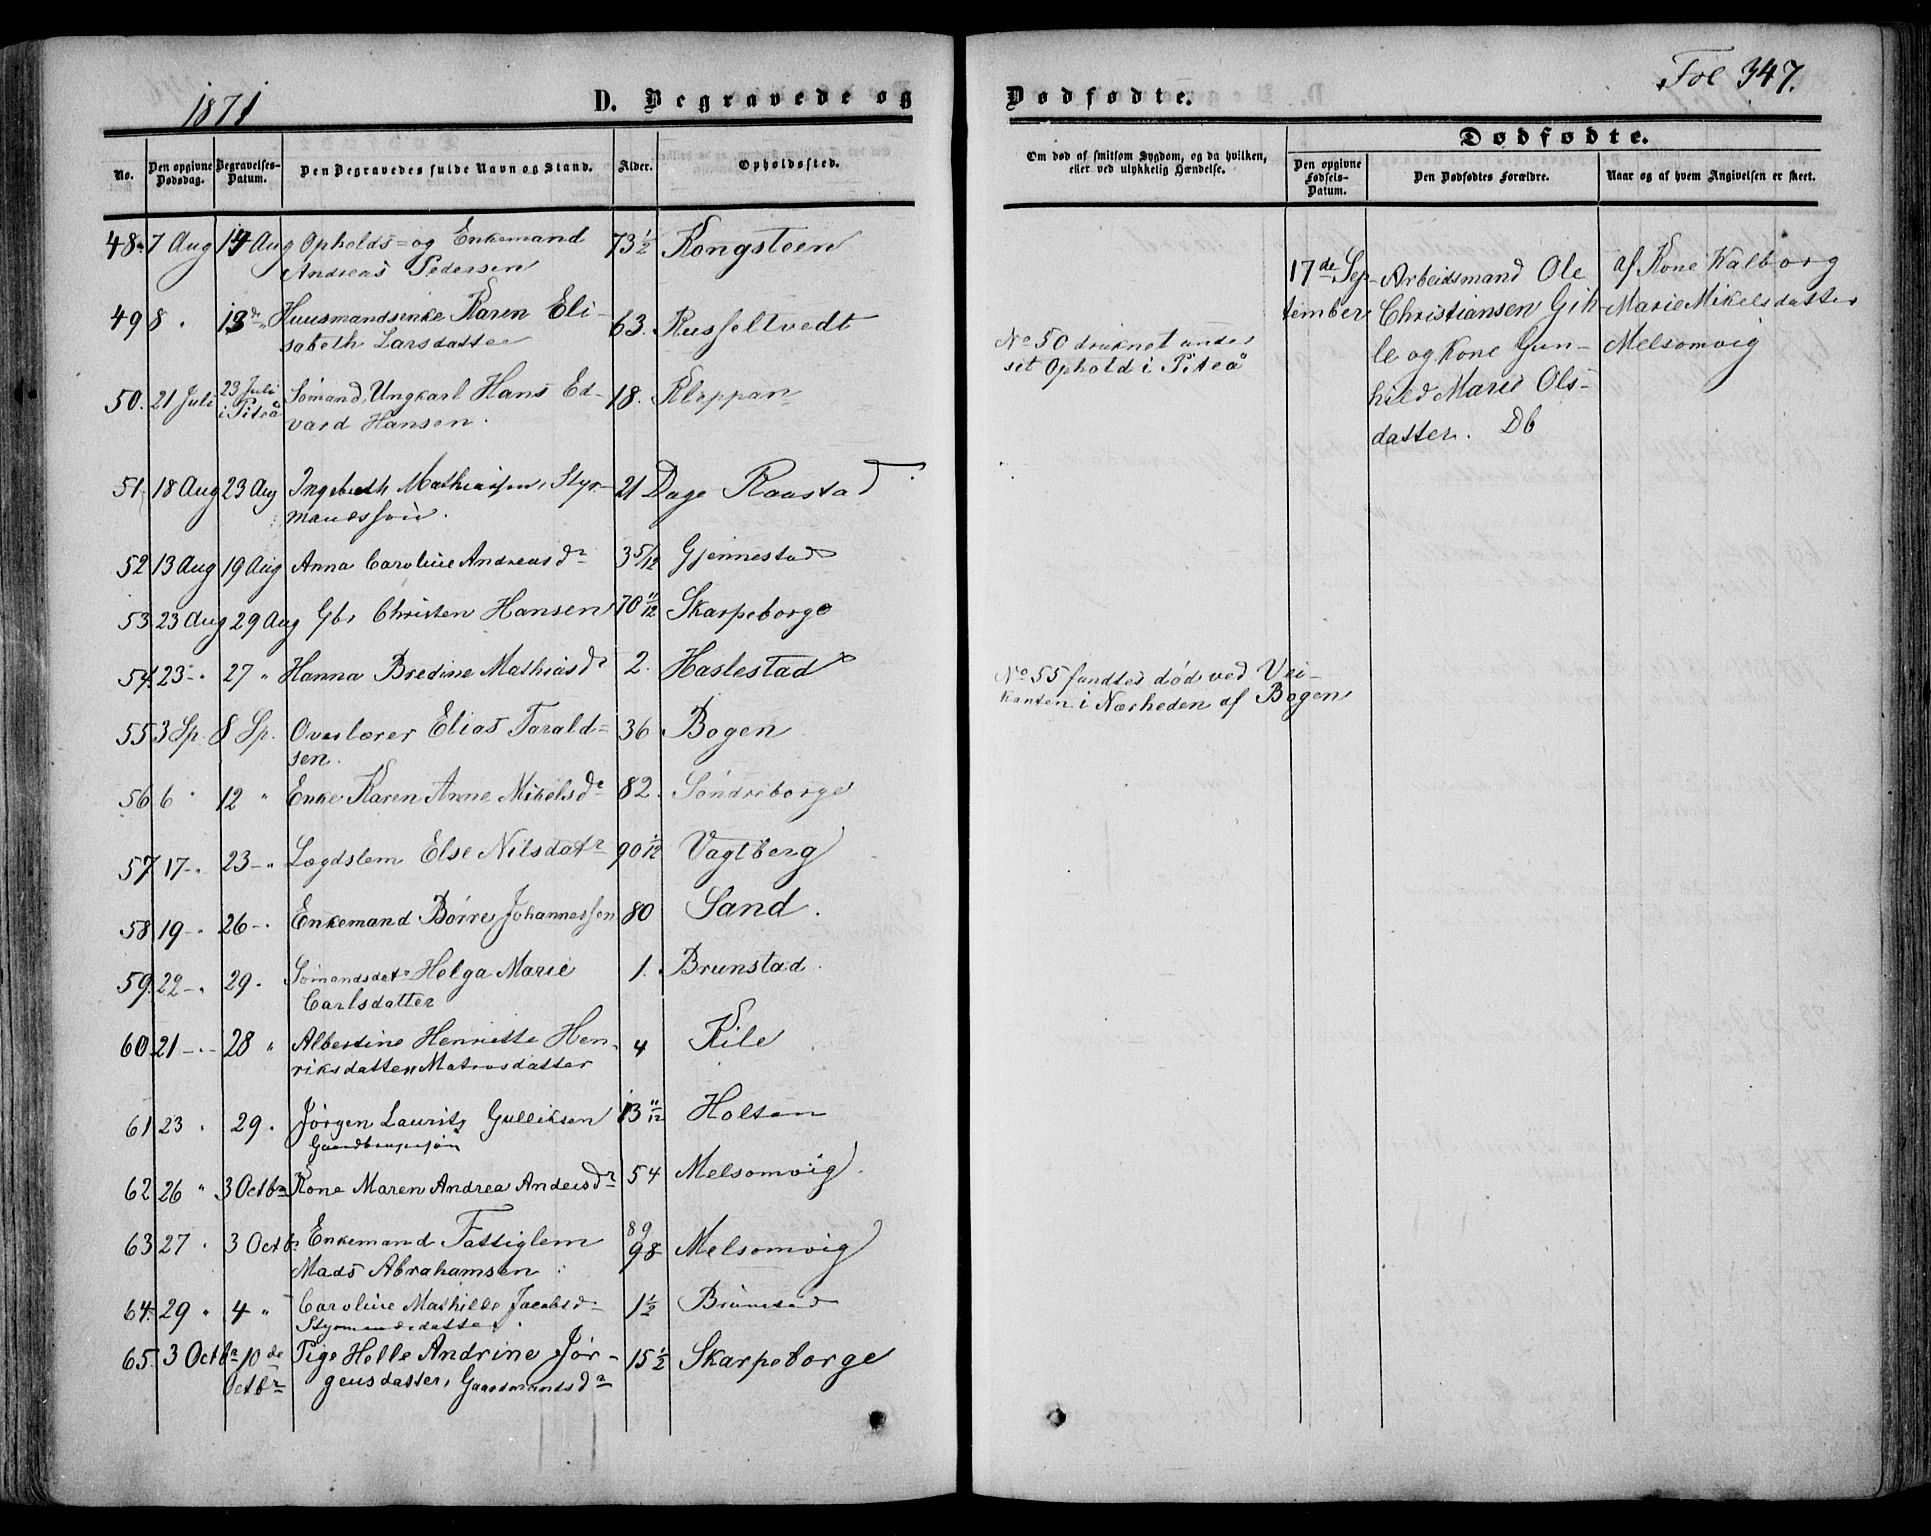 1871 D. Begravede og
No. Den opgivne Dødsdag. Begravelses-Datum. Den Begravedes fulde Navn og Stand. Alder. Opholdssted.
48. 7 Aug 14 Aug Opholds- og Enkemand 73 1/2 Kongsteen
Andreas Pedersen
49 8 " 13de " Huusmandsenke Karen Eli- 63. Russeltvedt
sabeth Larsdatter
50. 21 Juli 23 Juli i Piteå Sømand, Ungkarl Hans Ed- 18. Kleppan
vard Hansen.
51. 18 Aug 23 Aug Ingebreth Mathiassen, Styr- 21 Dage Raastad
mandssøn.
52 13 Aug 19 Aug Anna Caroline Andreasdr 3 5/12 Gjennestad
53. 23 Aug 29 Aug Gbr Christen Hansen 70 11/12 Skarpeborge
54. 23 - " 27 " Hanna Bredine Mathiasdr 2. Haslestad
55 3 Sp. 8 Sp. Overlærer Elias Tarald- 36 Bogen
sen.
56 6 " 12 " Enke Karen Anne Mikelsdr 82. Søndreborge
57 17 - " 23 - " Lægdslem Else Nilsdatr 90 1/12 Vagtberg
58 19 - " 26 - " Enkemand Børre Johannessen 80 Sand.
59. 22 - " 29 " Sømandsdatr Helga Marie 1. Brunstad.
Carlsdatter
60. 21 - " 28 " Albertine Henriette Hen- 4 Kile
riksdatter, Matrosdatter
61 23 " 29 " Jørgen Lauritz Gulliksen 13 11/12 Holten
Gaardbrugersøn
62 26 " 3 Octbr Kone Maren Andrea Andersdr 54 Melsomvig.
63 27 " 3 Octbr Enkemand Fattiglem 89 98 Melsomvig
Mads Abrahamsen
64. 29 " 4 " Caroline Mathilde Jacobsd- 1 1/2 Brunstad
Styrmandsdatter.
65. 3 Octbr 10de Octbr Pige Helle Andrine Jør- 15 1/2 Skarpeborge
gensdatter, Gaardmandsdr
Fol 347.
Dødfødte.
Dødfødte.
Om død af smitsom Sygdom, og da hvilken, eller ved ulykkelig Hændelse. Den opgivne Fødsels-Datum. Den Dødfødtes Forældre. Naar og af hvem Angivelsen er skeet.
17de Sep- Arbeidsmand Ole af Kone Walborg
tember Christiansen Gih- Marie Mikelsdatter
No 50 druknet under le og Kone Gun- Melsomvig
sit Ophold i Piteå
hild Marie Ols-
datter. Db
No 55 fandtes død ved Vei-
kanten i Nærheden af Bogen